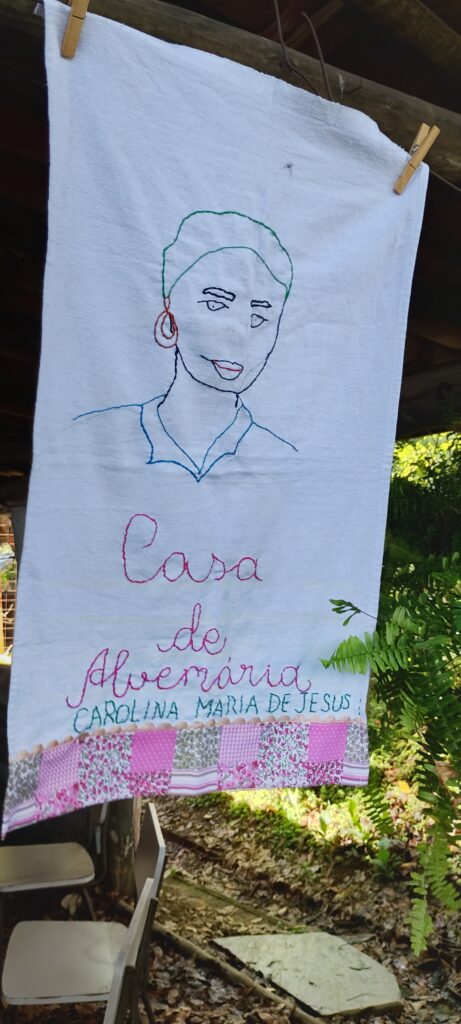 Casa
de
Alvemária
CAROLINA MARIA DE JESUS